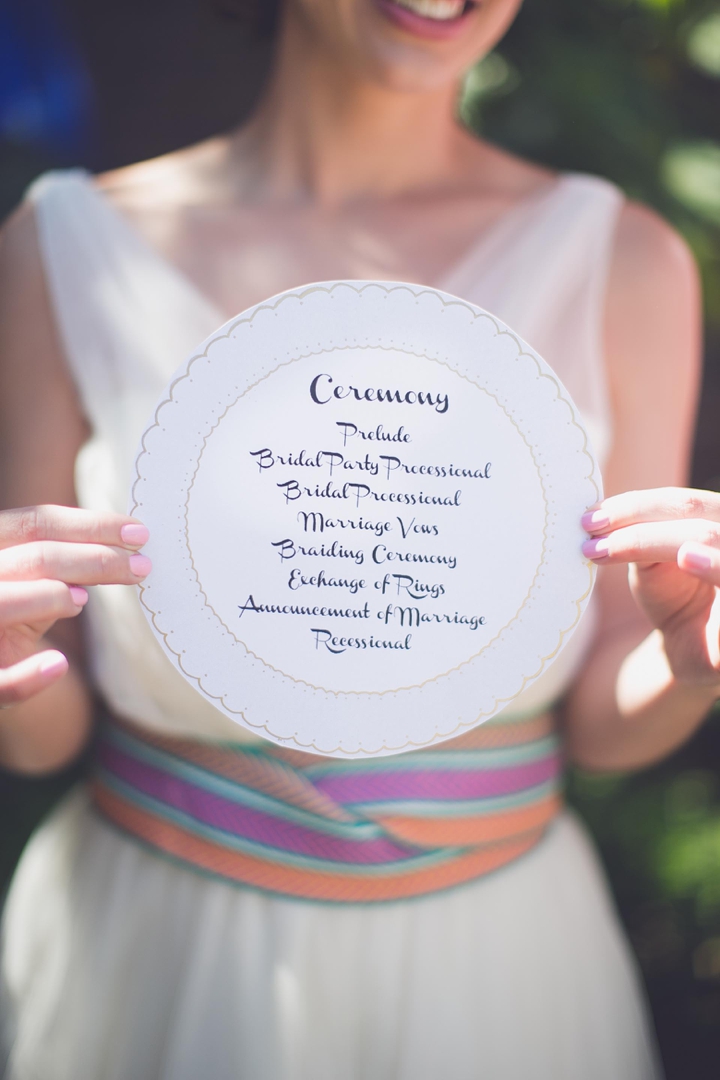 Ceremony
Prelude
Bridal Party Processional
Bridal Processional
Marriage Vows
Braiding Ceremony
Exchange of Rings
Announcement of Marriage
Recessional